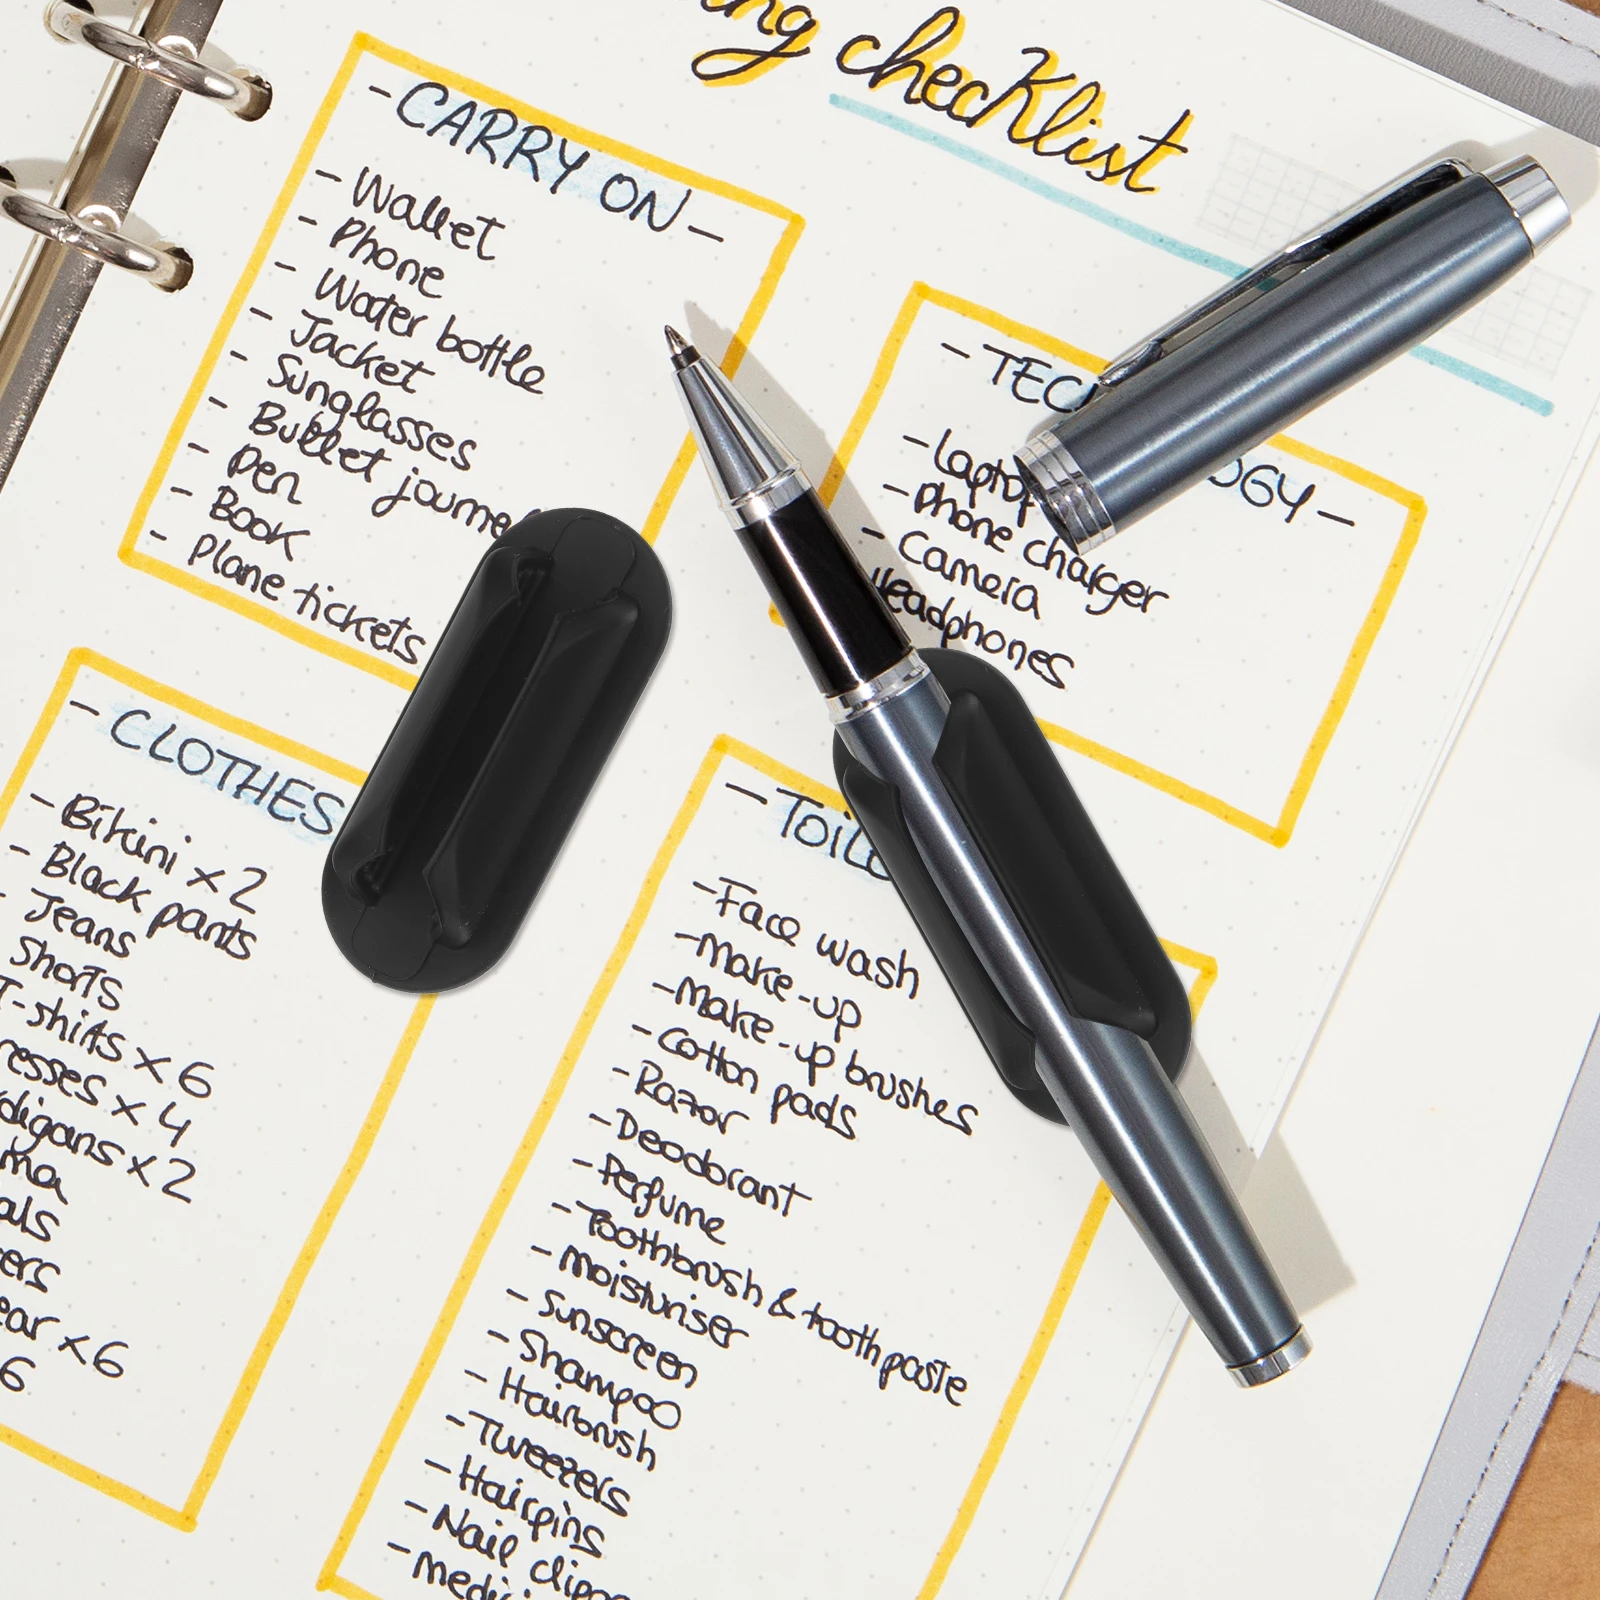 checklist
- CARRY ON -
- Wallet
- Phone
- Water bottle
- Jacket
- Sunglasses
- Bullet
- Pen
- Book
- Plane tickets
- TECHNOLOGY -
- Laptop
- Phone charger
- Camera
Headphones
- CLOTHES
- Bikini x 2
- Black pants
- Jeans
Shorts
T-shirts x 6
x 4
x 2
x6
6
- Face wash
- Make-up
- Make-up brushes
- Cotton pads
- Razor
- Deodorant
- Perfume
- Toothbrush & toothpaste
- Moisturiser
- Sunscreen
- Shampoo
- Hairbrush
- Tweezers
- Hairpins
- Nail